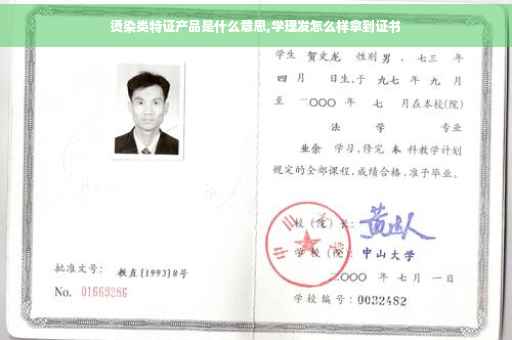 烫染类特证产品是什么意思,学理发怎么样拿到证书
学生 贺文龙 性别 男 、七三 年
四 月 日生,于 九七 年 九 月
至 二〇〇〇 年 七 月在本校(院)
法 学 专业
业余 学习,修完 本 科教学计划
规定的全部课程,成绩合格,准予毕业。
校(院)长:
学校(院): 中山大学
二〇〇〇 年 七 月 一 日
学校编号:0032482
批准文号: 教直(1993)8号
No. 01669286